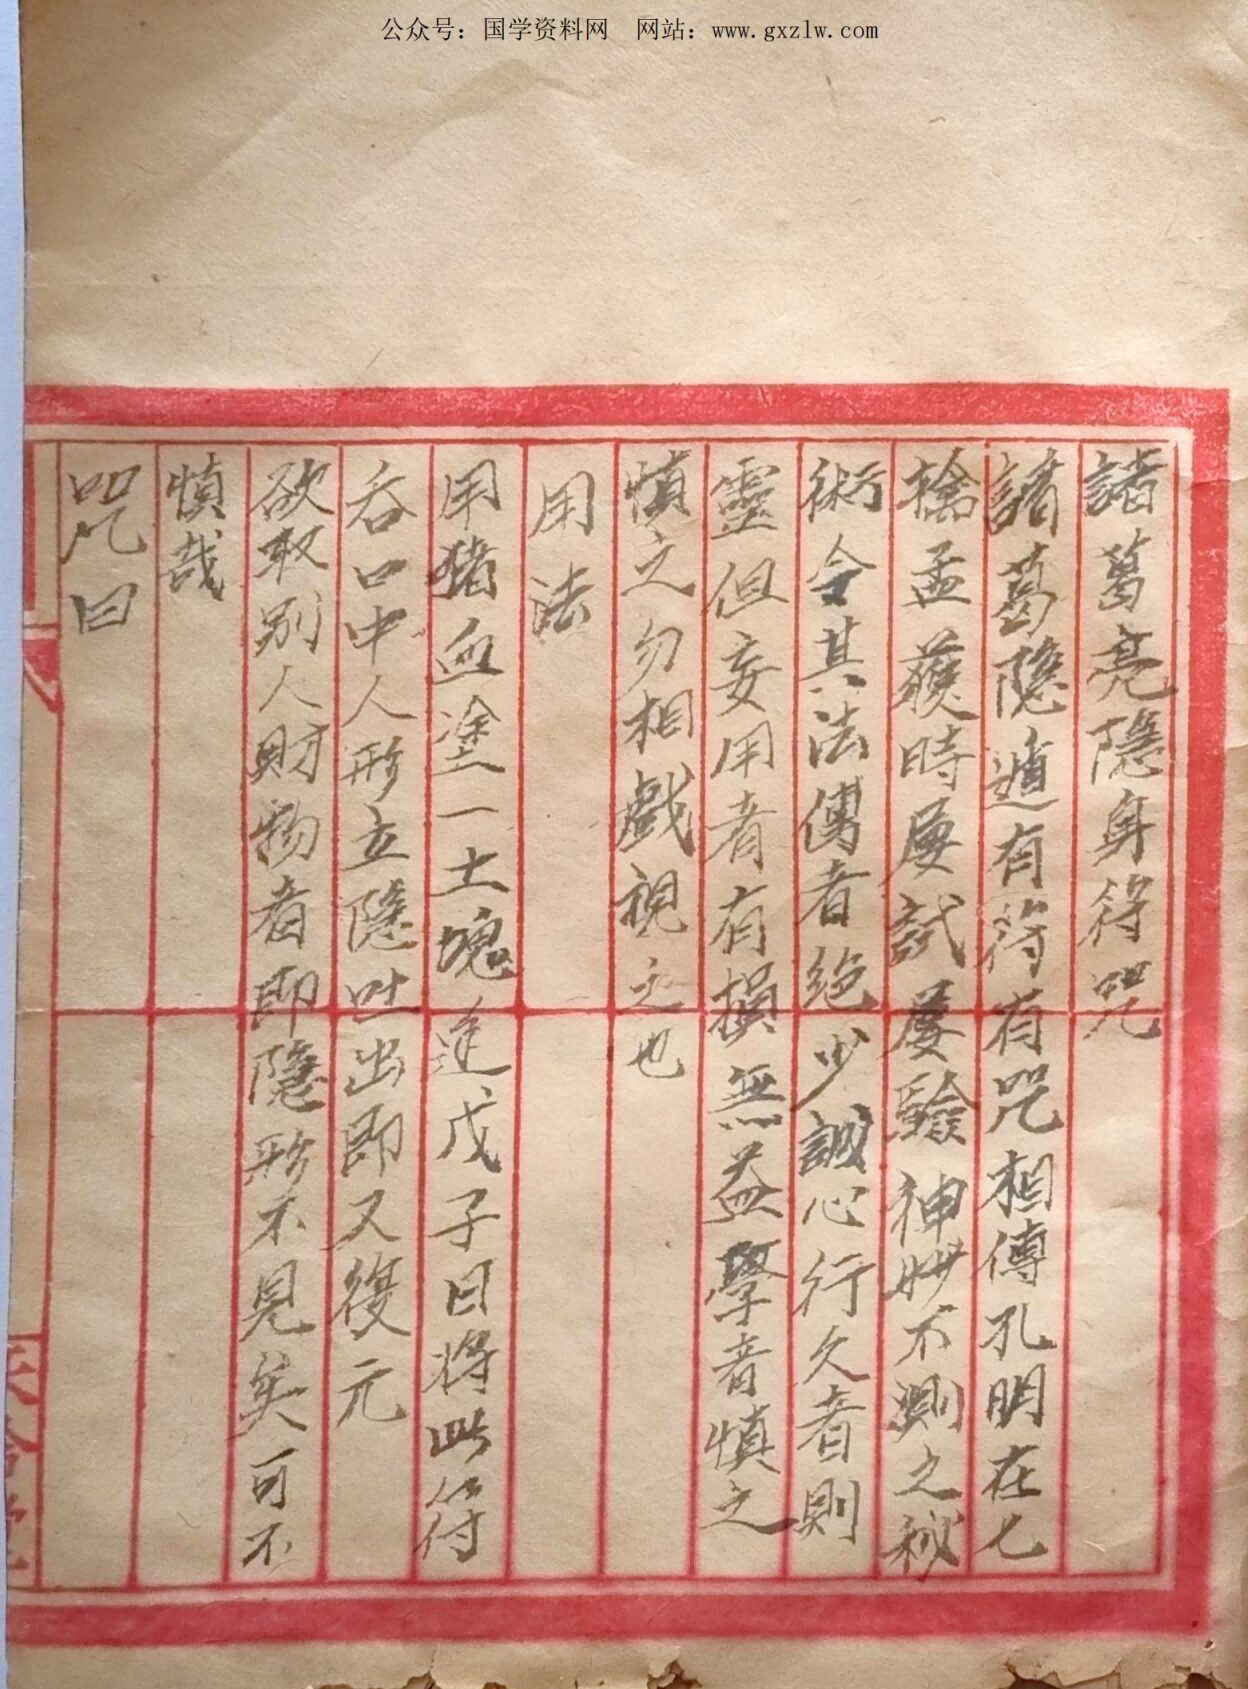 公众号：国学资料网 网站：www.gxzlw.com
諸葛亮隱身符咒
諸葛隱遁有符有咒相傳孔明在七
擒孟獲時屢試屢驗神妙不測之秘
術今其法傳者絶少誠心行久者則
靈但妄用者有損無益學者慎之
慎之勿相戲視之也
用法
用豬血塗一土塊逢戊子日將此符
吞口中人形立隱吐出即又復元
欲取别人財物者即隱形不見矣可不
慎哉
咒曰